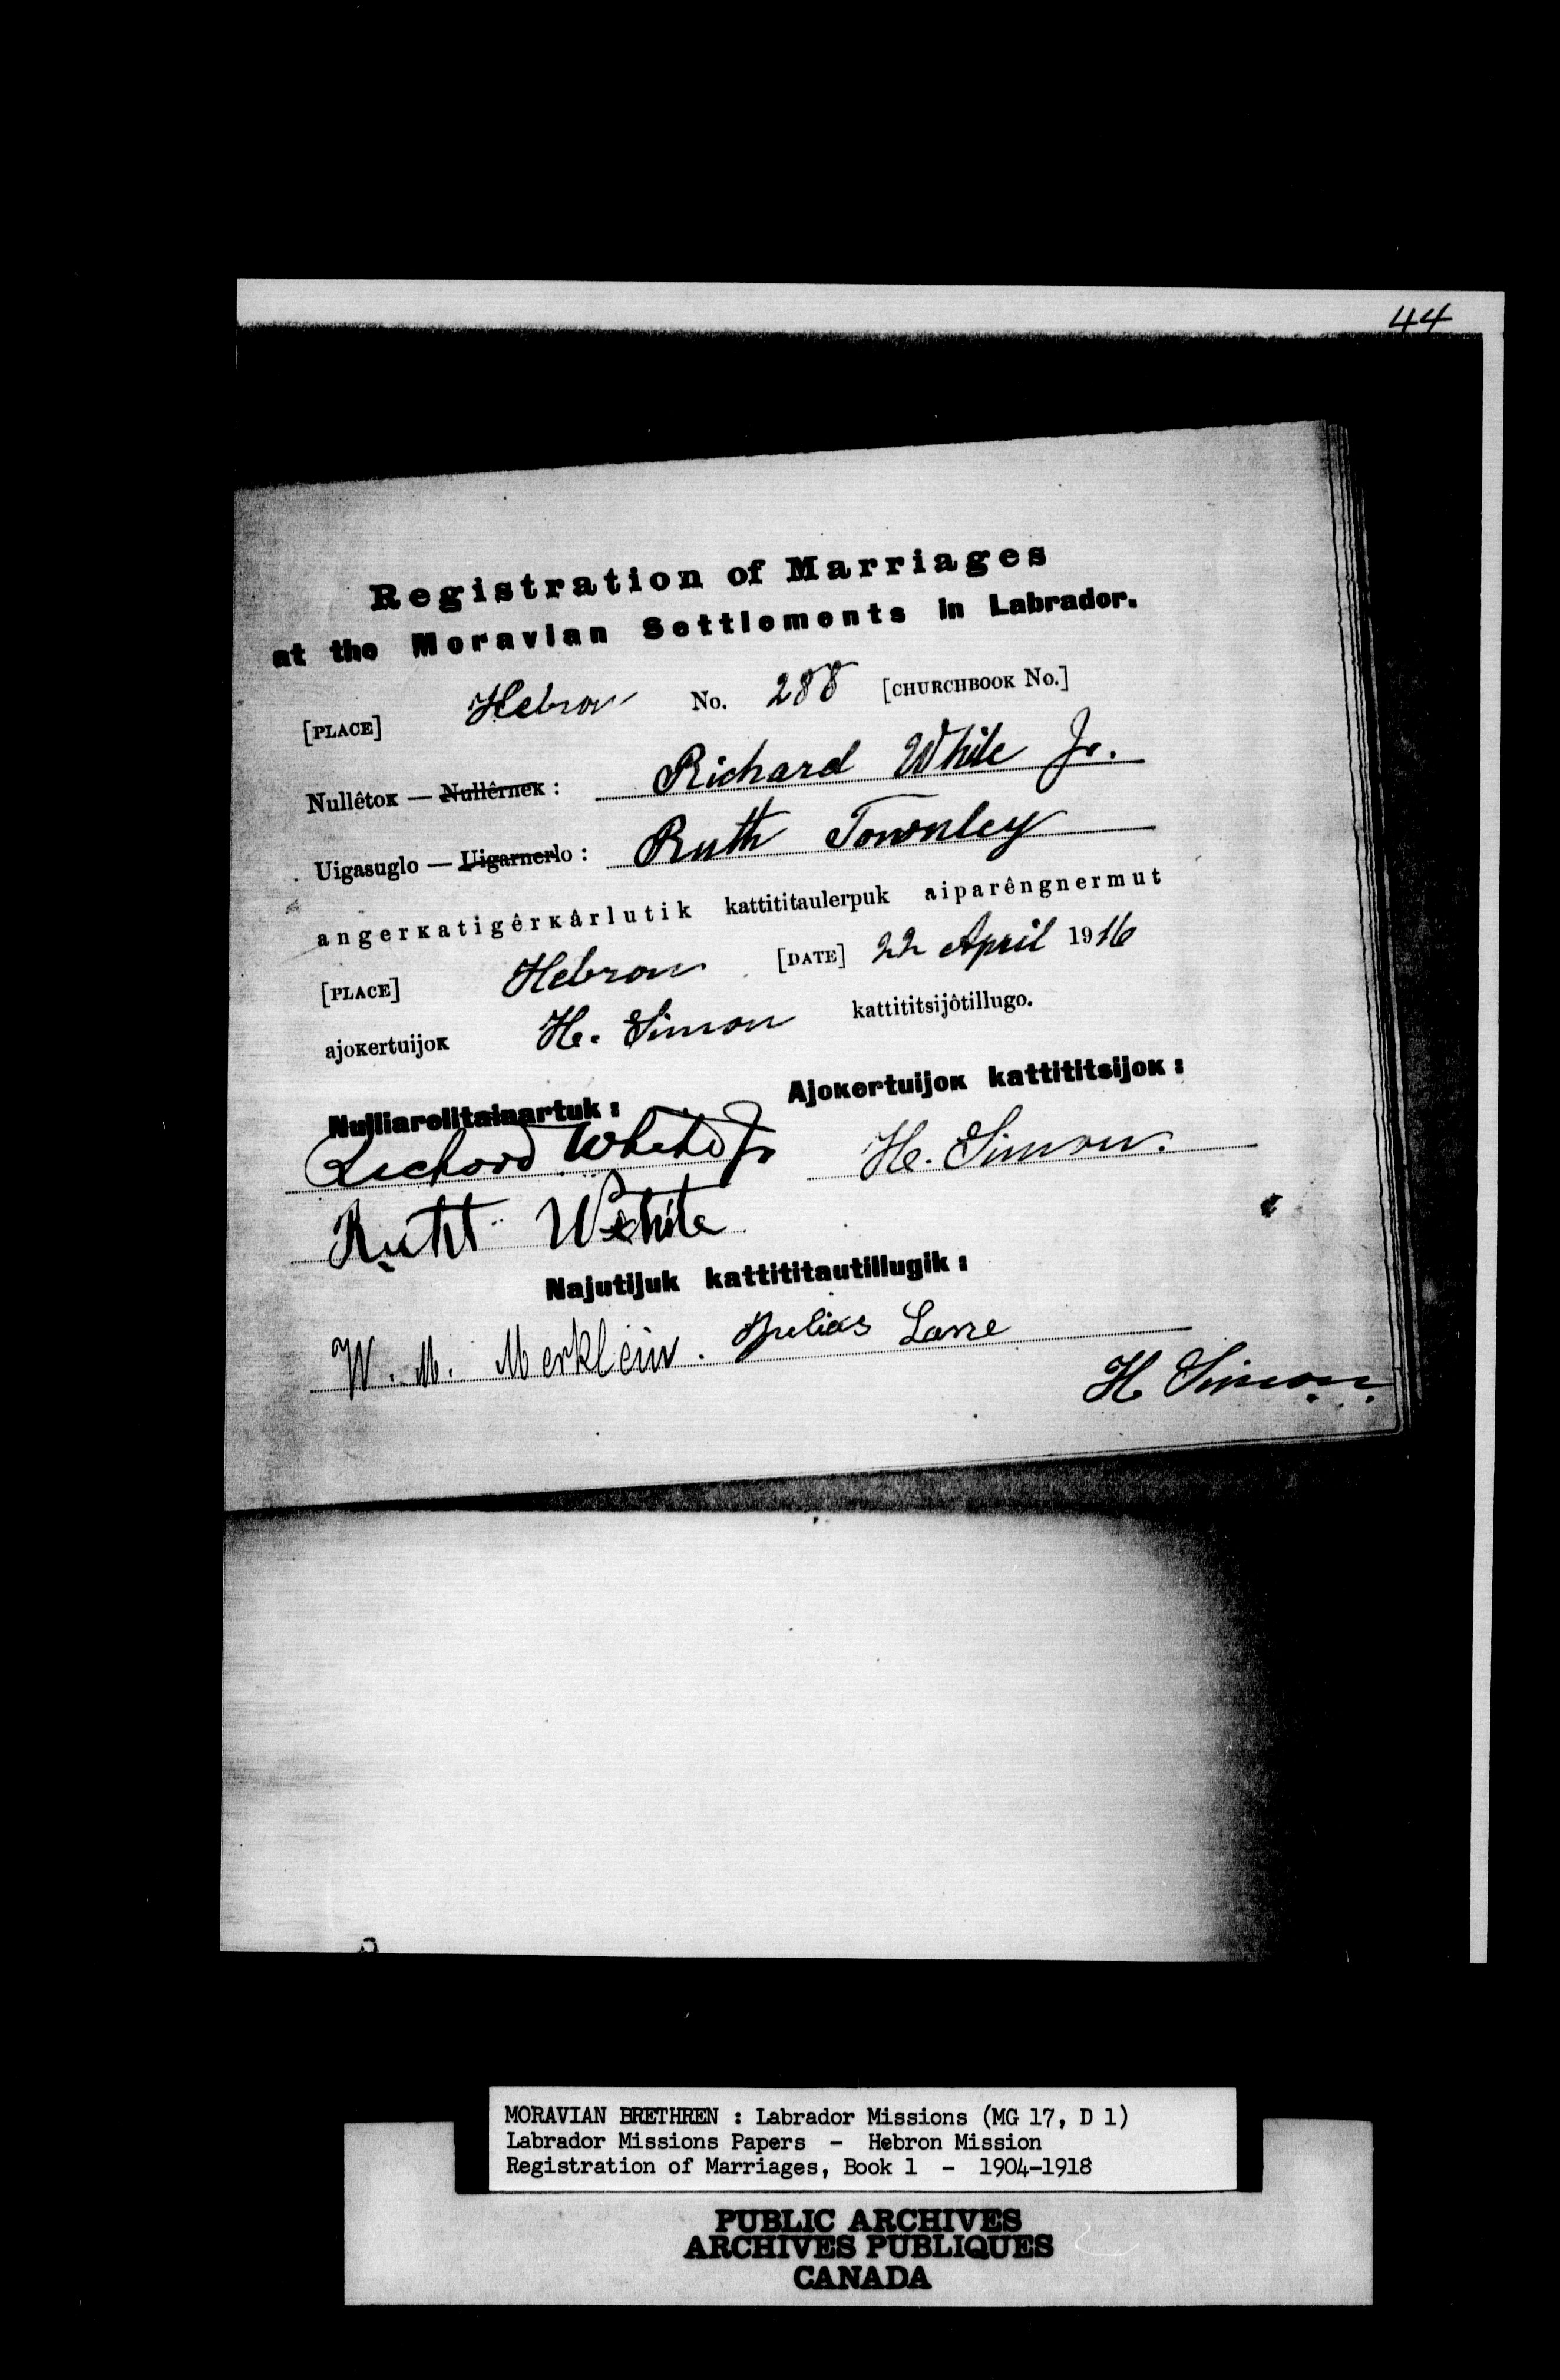 44
Registration of Marriages
at the Moravian Settlements in Labrador.
[PLACE] Hebron No. 288 [CHURCHBOOK No.]
Nullêtoĸ — Nullêrneĸ : Richard White Jr.
Uigasuglo — Uigarnerlo : Ruth Townley
angerĸatigêrĸârlutik kattititaulerpuk aiparêngnermut
[PLACE] Hebron [DATE] 22 April 1916
ajoĸertuijoĸ H. Simon kattititsijôtillugo.
Nulliarelitainartuk : Ajoĸertuijoĸ kattititsijoĸ :
Richard White Jr H. Simon.
Ruth White
Najutijuk kattititautillugik :
W. M. Merklein. Julias
H Simon.
MORAVIAN BRETHREN : Labrador Missions (MG 17, D 1)
Labrador Missions Papers - Hebron Mission
Registration of Marriages, Book 1 - 1904-1918
PUBLIC ARCHIVES
ARCHIVES PUBLIQUES
CANADA